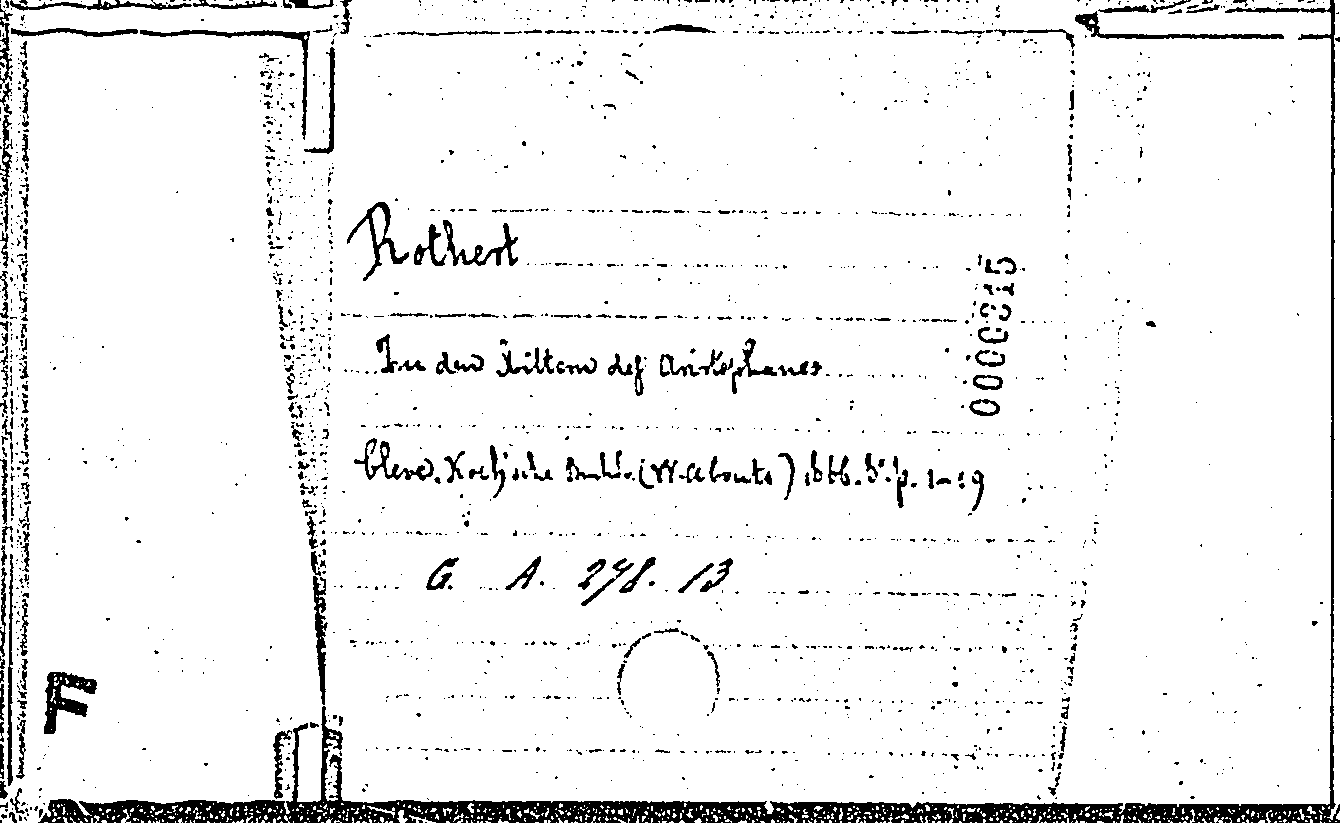 Rothert
Zu den Rittern des Aristophanes
Cleve. Koch'sche Buchh. (W. Abouts) 8° p. 1-19
G. A. 248. 13
0000815
F